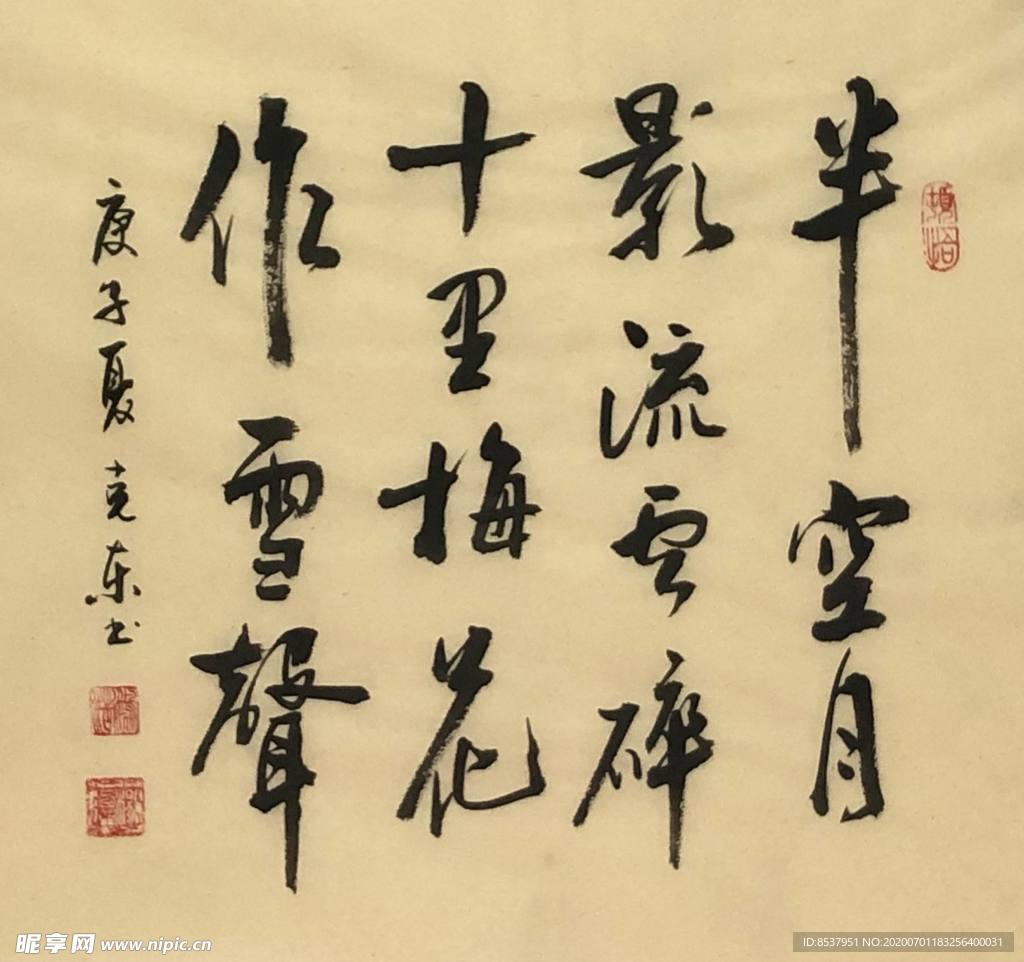 半空月
影流云碎
十里梅花
作雪聲
庚子夏克东书
昵享网 www.nipic.cn
ID:8537951 NO:20200701183256400031